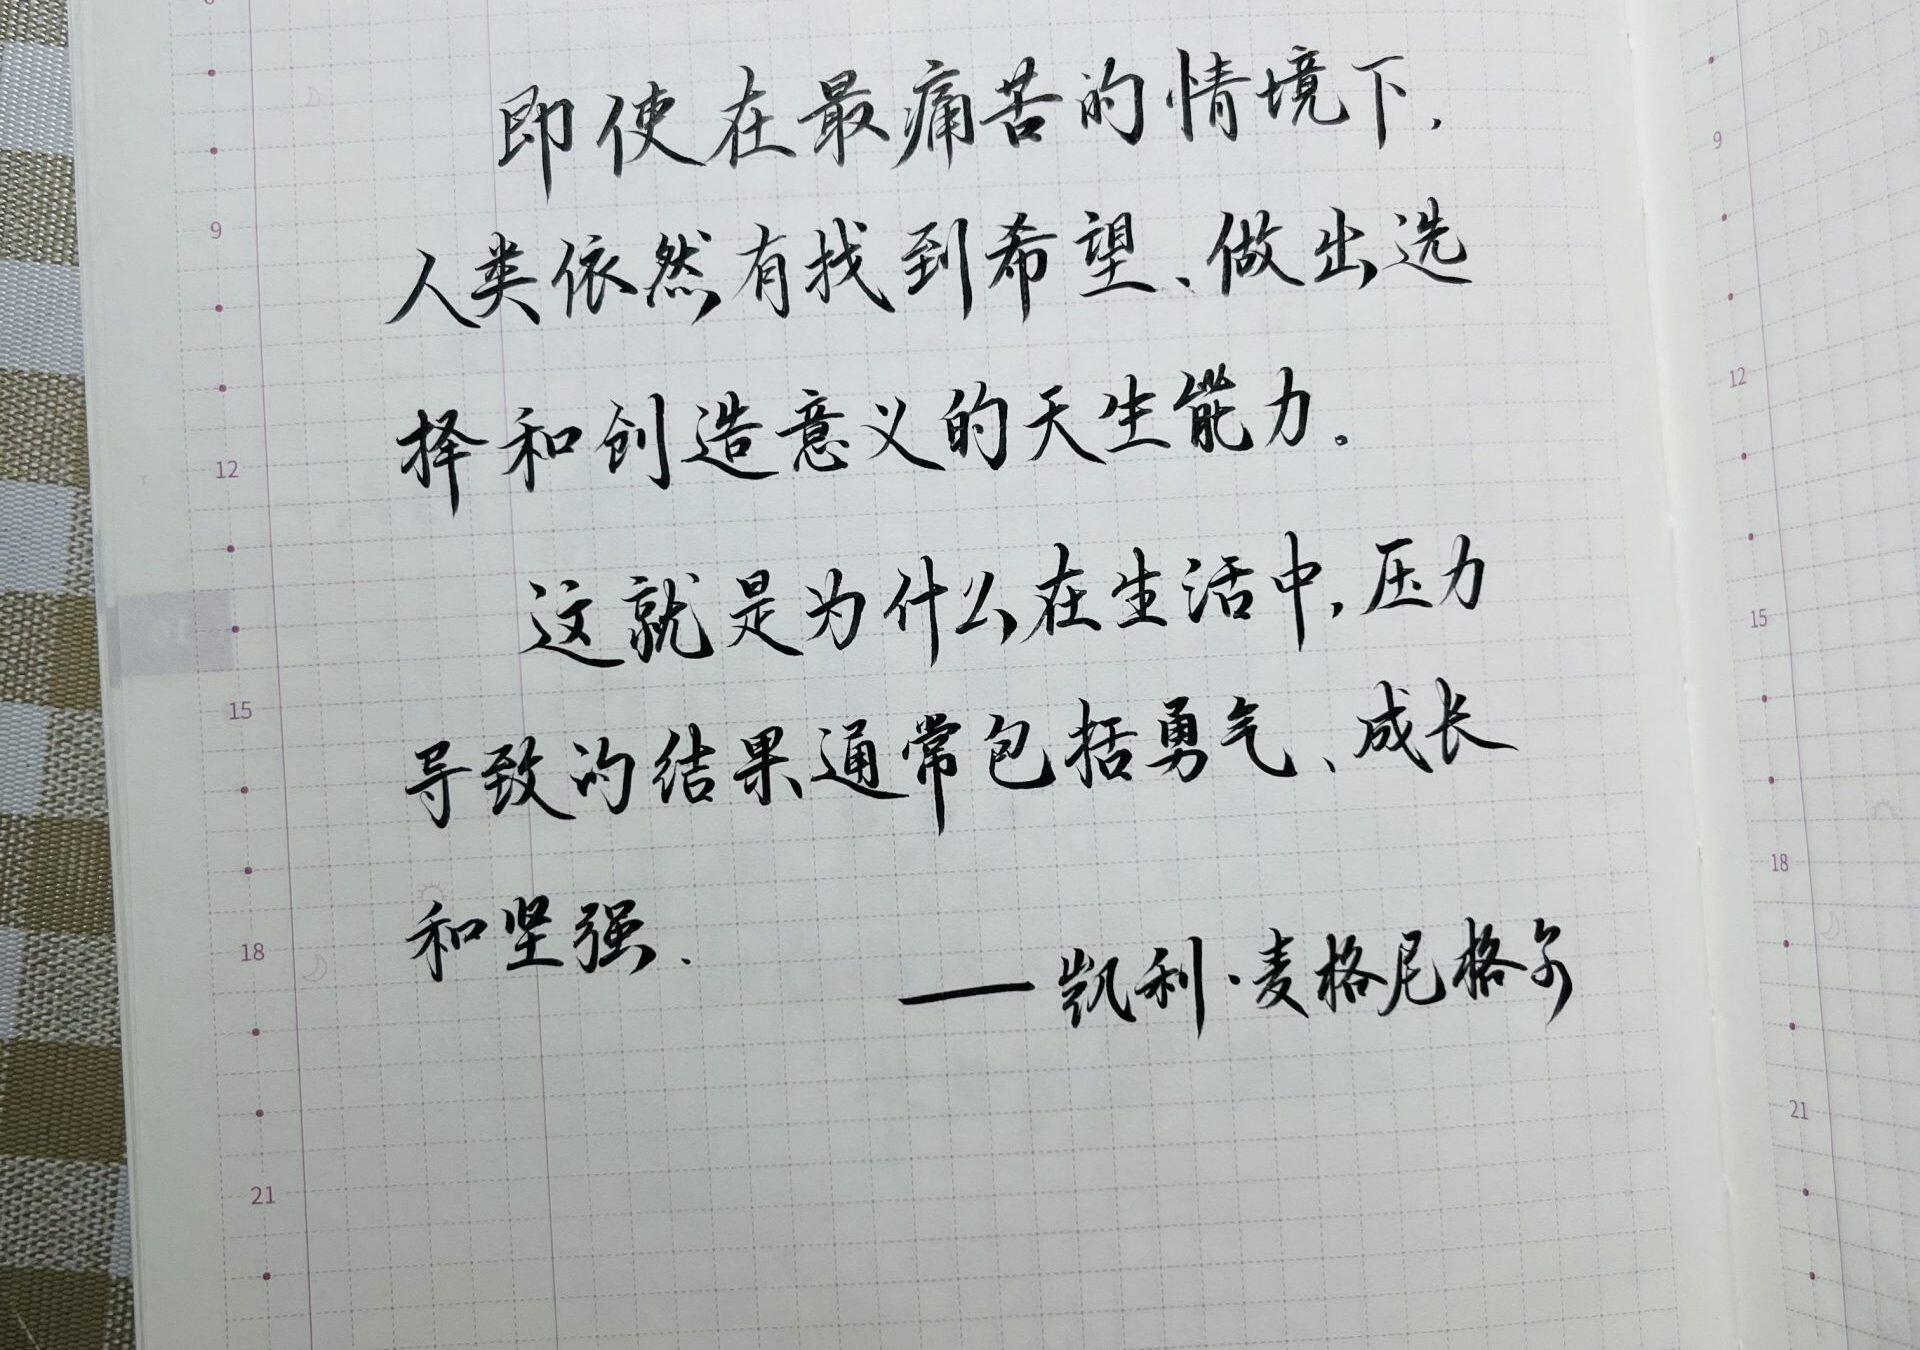 即使在最痛苦的情境下,
人类依然有找到希望、做出选
择和创造意义的天生能力。
这就是为什么在生活中,压力
导致的结果通常包括勇气、成长
和坚强.
——凯利·麦格尼格尔
9
12
15
18
21
9
12
15
18
21